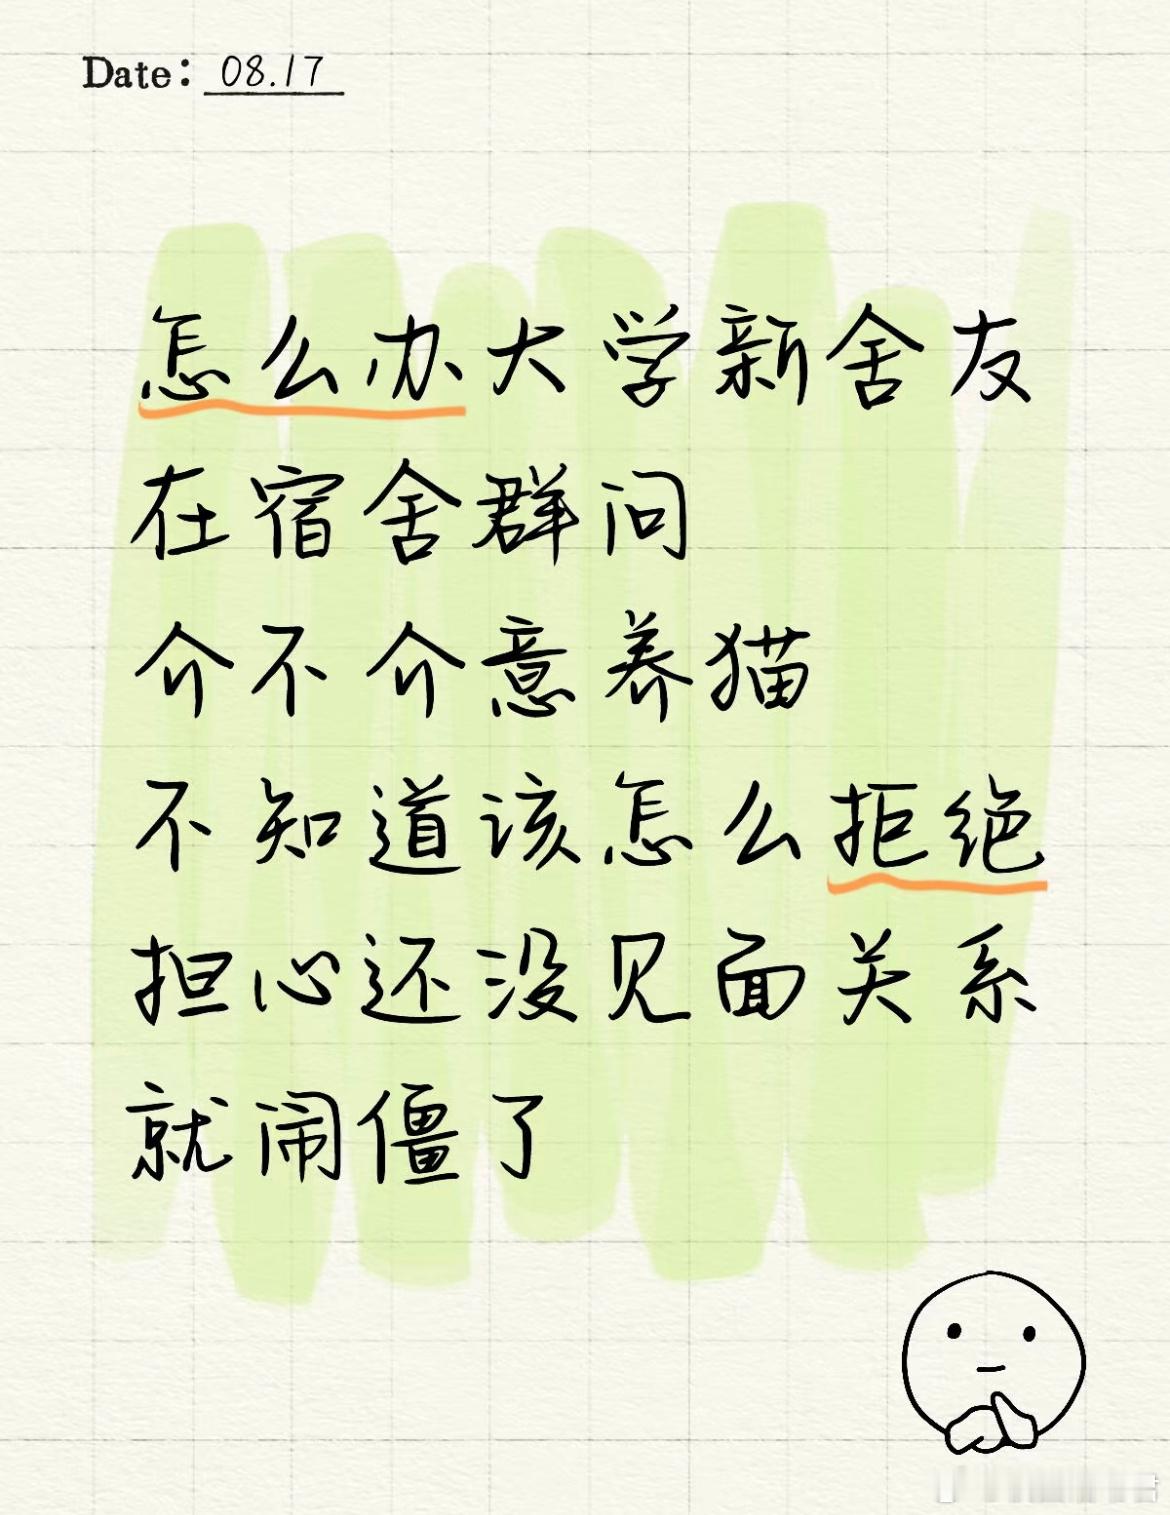 Date: 08.17
怎么办大学新舍友
在宿舍群问
介不介意养猫
不知道该怎么拒绝
担心还没见面关系
就闹僵了